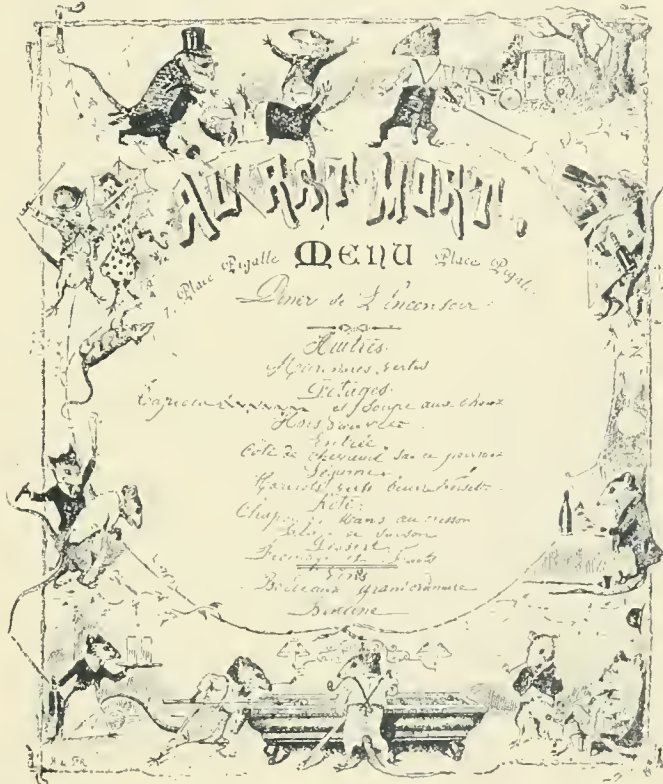 AU RAT MORT.
MENU
7, Place Pigalle Place Pigalle
Diner de L'encensoir
Huitres
vertes
Potages
Tapioca et Soupe aux choux
Hors d'œuvre
Entrée
Côte de chevreuil sauce poivrade
Légumes
Haricots verts
Roti
Chapon du Mans au cresson
Salade de saison
Dessert
Fromage et fruits
Vins
Bordeaux grand ordinaire